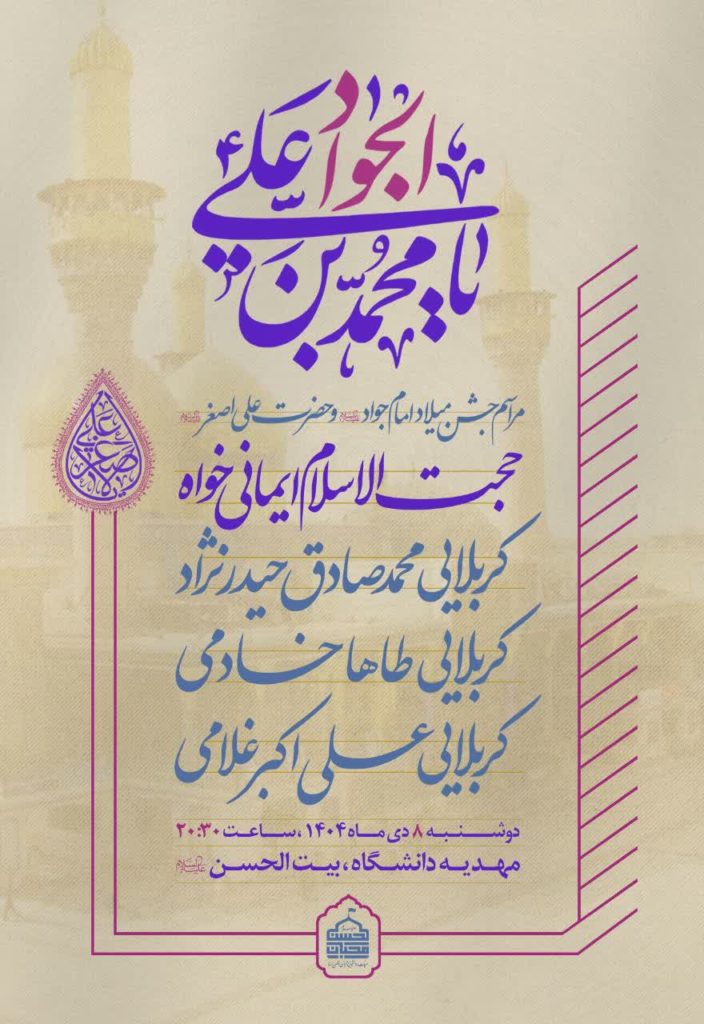 یا محمّد بن علیّ
الجواد
مراسم جشن میلاد امام جواد علیه السلام و حضرت علی اصغر علیه السلام
یا علی اصغر
حجت الاسلام ایمانی خواه
کربلایی محمد صادق حیدرنژاد
کربلایی طاها خادمی
کربلایی علی اکبر غلامی
دوشنبه ۸ دی ماه ۱۴۰۴، ساعت ۲۰:۳۰
مهدیه دانشگاه، بیت الحسن علیه السلام